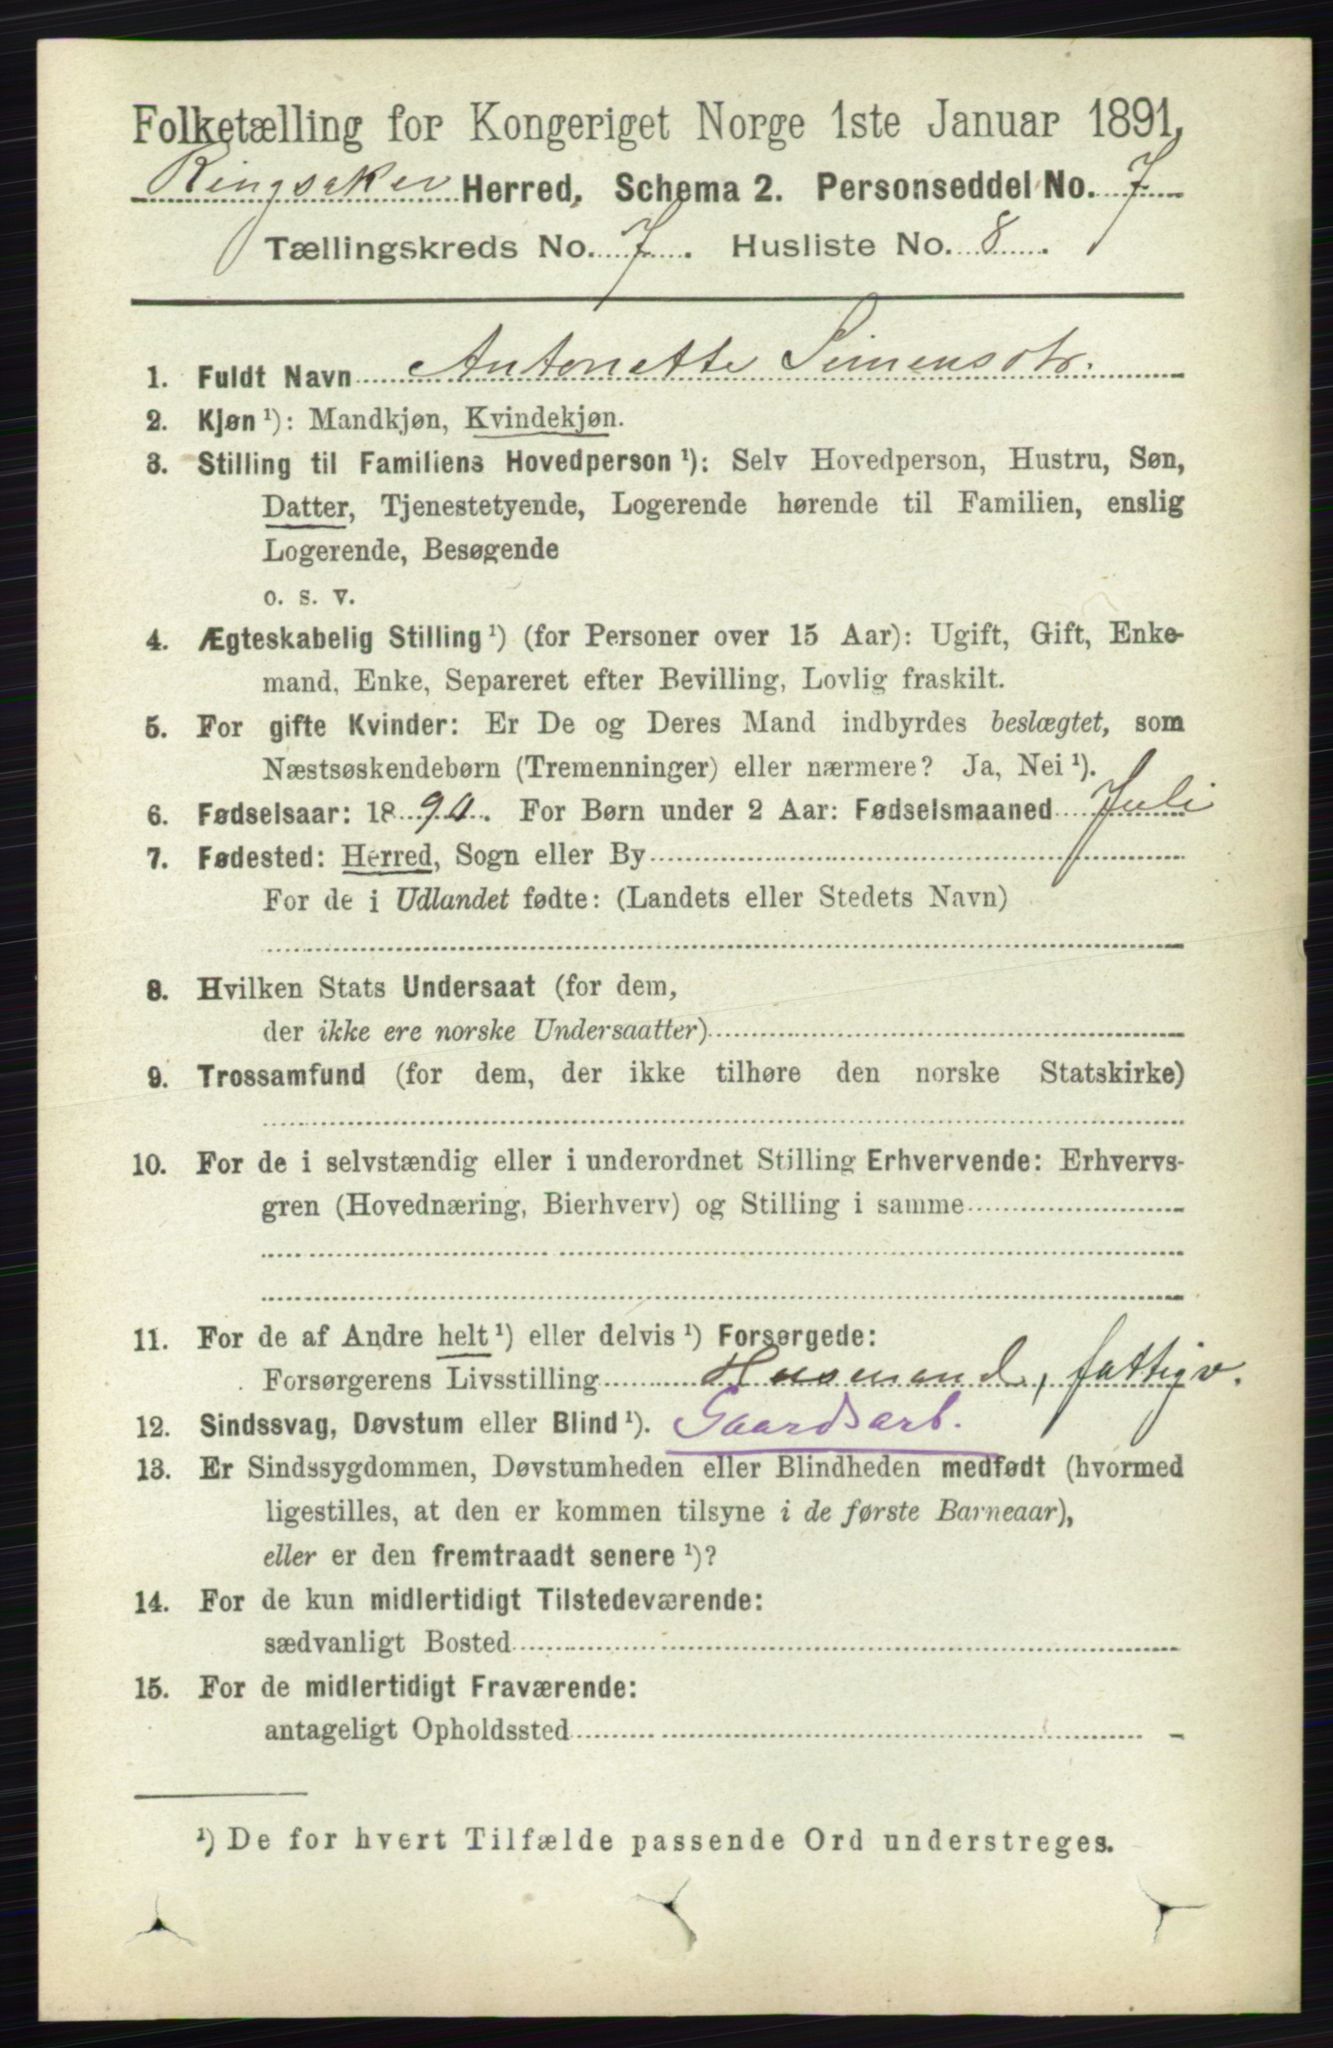 Folketælling for Kongeriget Norge 1ste Januar 1891.
Ringsaker Herred. Schema 2. Personseddel No. 7
Tællingskreds No. 7. Husliste No. 8.
1. Fuldt Navn Antonette Simensdtr.
2. Kjøn ¹): Mandkjøn, Kvindekjøn.
3. Stilling til Familiens Hovedperson ¹): Selv Hovedperson, Hustru, Søn,
Datter, Tjenestetyende, Logerende hørende til Familien, enslig
Logerende, Besøgende
o. s. v.
4. Ægteskabelig Stilling ¹) (for Personer over 15 Aar): Ugift, Gift, Enke-
mand, Enke, Separeret efter Bevilling, Lovlig fraskilt.
5. For gifte Kvinder: Er De og Deres Mand indbyrdes beslægtet, som
Næstsøskendebørn (Tremenninger) eller nærmere? Ja, Nei ¹).
6. Fødselsaar: 1890. For Børn under 2 Aar: Fødselsmaaned Juli
7. Fødested: Herred, Sogn eller By
For de i Udlandet fødte: (Landets eller Stedets Navn)
8. Hvilken Stats Undersaat (for dem,
der ikke ere norske Undersaatter)
9. Trossamfund (for dem, der ikke tilhøre den norske Statskirke)
10. For de i selvstændig eller i underordnet Stilling Erhvervende: Erhvervs-
gren (Hovednæring, Bierhverv) og Stilling i samme
11. For de af Andre helt ¹) eller delvis ¹) Forsørgede:
Forsørgerens Livsstilling Husmand, fattigv.
12. Sindssvag, Døvstum eller Blind ¹). Gaardsarb.
13. Er Sindssygdommen, Døvstumheden eller Blindheden medfødt (hvormed
ligestilles, at den er kommen tilsyne i de første Barneaar),
eller er den fremtraadt senere ¹)?
14. For de kun midlertidigt Tilstedeværende:
sædvanligt Bosted
15. For de midlertidigt Fraværende:
antageligt Opholdssted
¹) De for hvert Tilfælde passende Ord understreges.